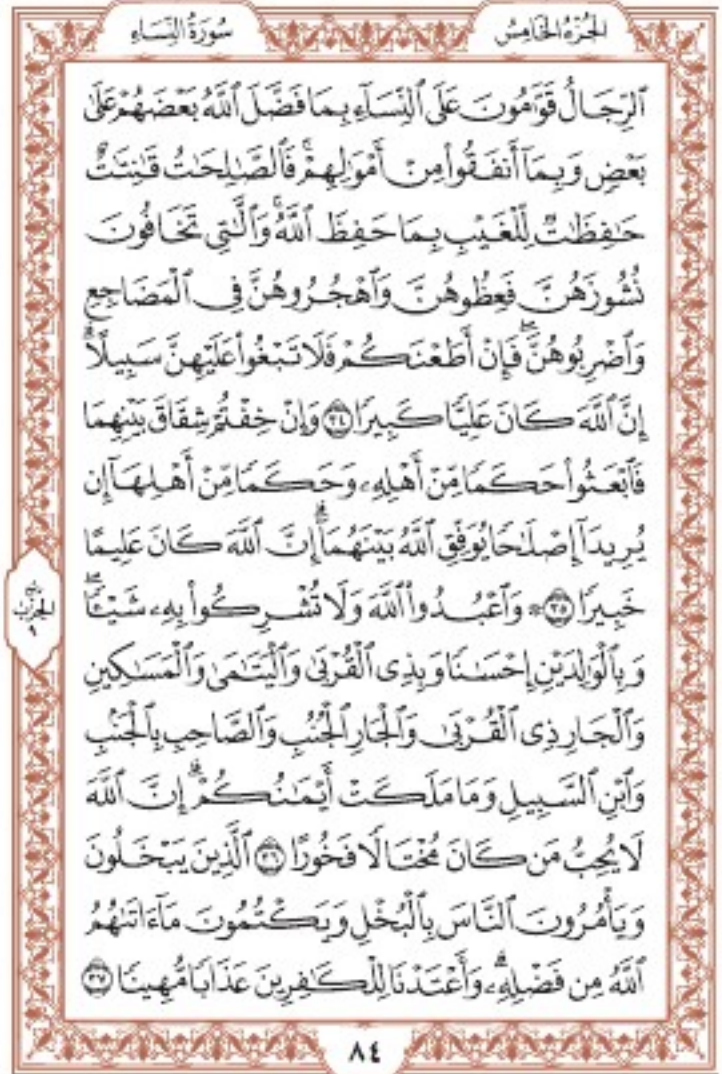 سُورَةُ النِّسَاءِ
الجُزْءُ الخَامِسُ
ٱلرِّجَالُ قَوَّٰمُونَ عَلَى ٱلنِّسَآءِ بِمَا فَضَّلَ ٱللَّهُ بَعْضَهُمْ عَلَىٰ
بَعْضٖ وَبِمَآ أَنفَقُواْ مِنْ أَمْوَٰلِهِمْۚ فَٱلصَّٰلِحَٰتُ قَٰنِتَٰتٌ
حَٰفِظَٰتٞ لِّلْغَيْبِ بِمَا حَفِظَ ٱللَّهُۚ وَٱلَّٰتِي تَخَافُونَ
نُشُوزَهُنَّ فَعِظُوهُنَّ وَٱهْجُرُوهُنَّ فِي ٱلْمَضَاجِعِ
وَٱضْرِبُوهُنَّۖ فَإِنْ أَطَعْنَكُمْ فَلَا تَبْغُواْ عَلَيْهِنَّ سَبِيلًاۗ
إِنَّ ٱللَّهَ كَانَ عَلِيّٗا كَبِيرٗا ٣٤ وَإِنْ خِفْتُمْ شِقَاقَ بَيْنِهِمَا
فَٱبْعَثُواْ حَكَمٗا مِّنْ أَهْلِهِۦ وَحَكَمٗا مِّنْ أَهْلِهَآ إِن
يُرِيدَآ إِصْلَٰحٗا يُوَفِّقِ ٱللَّهُ بَيْنَهُمَآۗ إِنَّ ٱللَّهَ كَانَ عَلِيمًا
خَبِيرٗا ٣٥ ۞ وَٱعْبُدُواْ ٱللَّهَ وَلَا تُشْرِكُواْ بِهِۦ شَيْـٔٗاۖ
وَبِٱلْوَٰلِدَيْنِ إِحْسَٰنٗا وَبِذِي ٱلْقُرْبَىٰ وَٱلْيَتَٰمَىٰ وَٱلْمَسَٰكِينِ
وَٱلْجَارِ ذِي ٱلْقُرْبَىٰ وَٱلْجَارِ ٱلْجُنُبِ وَٱلصَّاحِبِ بِٱلْجَنۢبِ
وَٱبْنِ ٱلسَّبِيلِ وَمَا مَلَكَتْ أَيْمَٰنُكُمْۗ إِنَّ ٱللَّهَ
لَا يُحِبُّ مَن كَانَ مُخْتَالٗا فَخُورًا ٣٦ ٱلَّذِينَ يَبْخَلُونَ
وَيَأْمُرُونَ ٱلنَّاسَ بِٱلْبُخْلِ وَيَكْتُمُونَ مَآ ءَاتَىٰهُمُ
ٱللَّهُ مِن فَضْلِهِۦۗ وَأَعْتَدْنَا لِلْكَٰفِرِينَ عَذَابٗا مُّهِينٗا ٣٧
الحِزْب
٩
٨٤